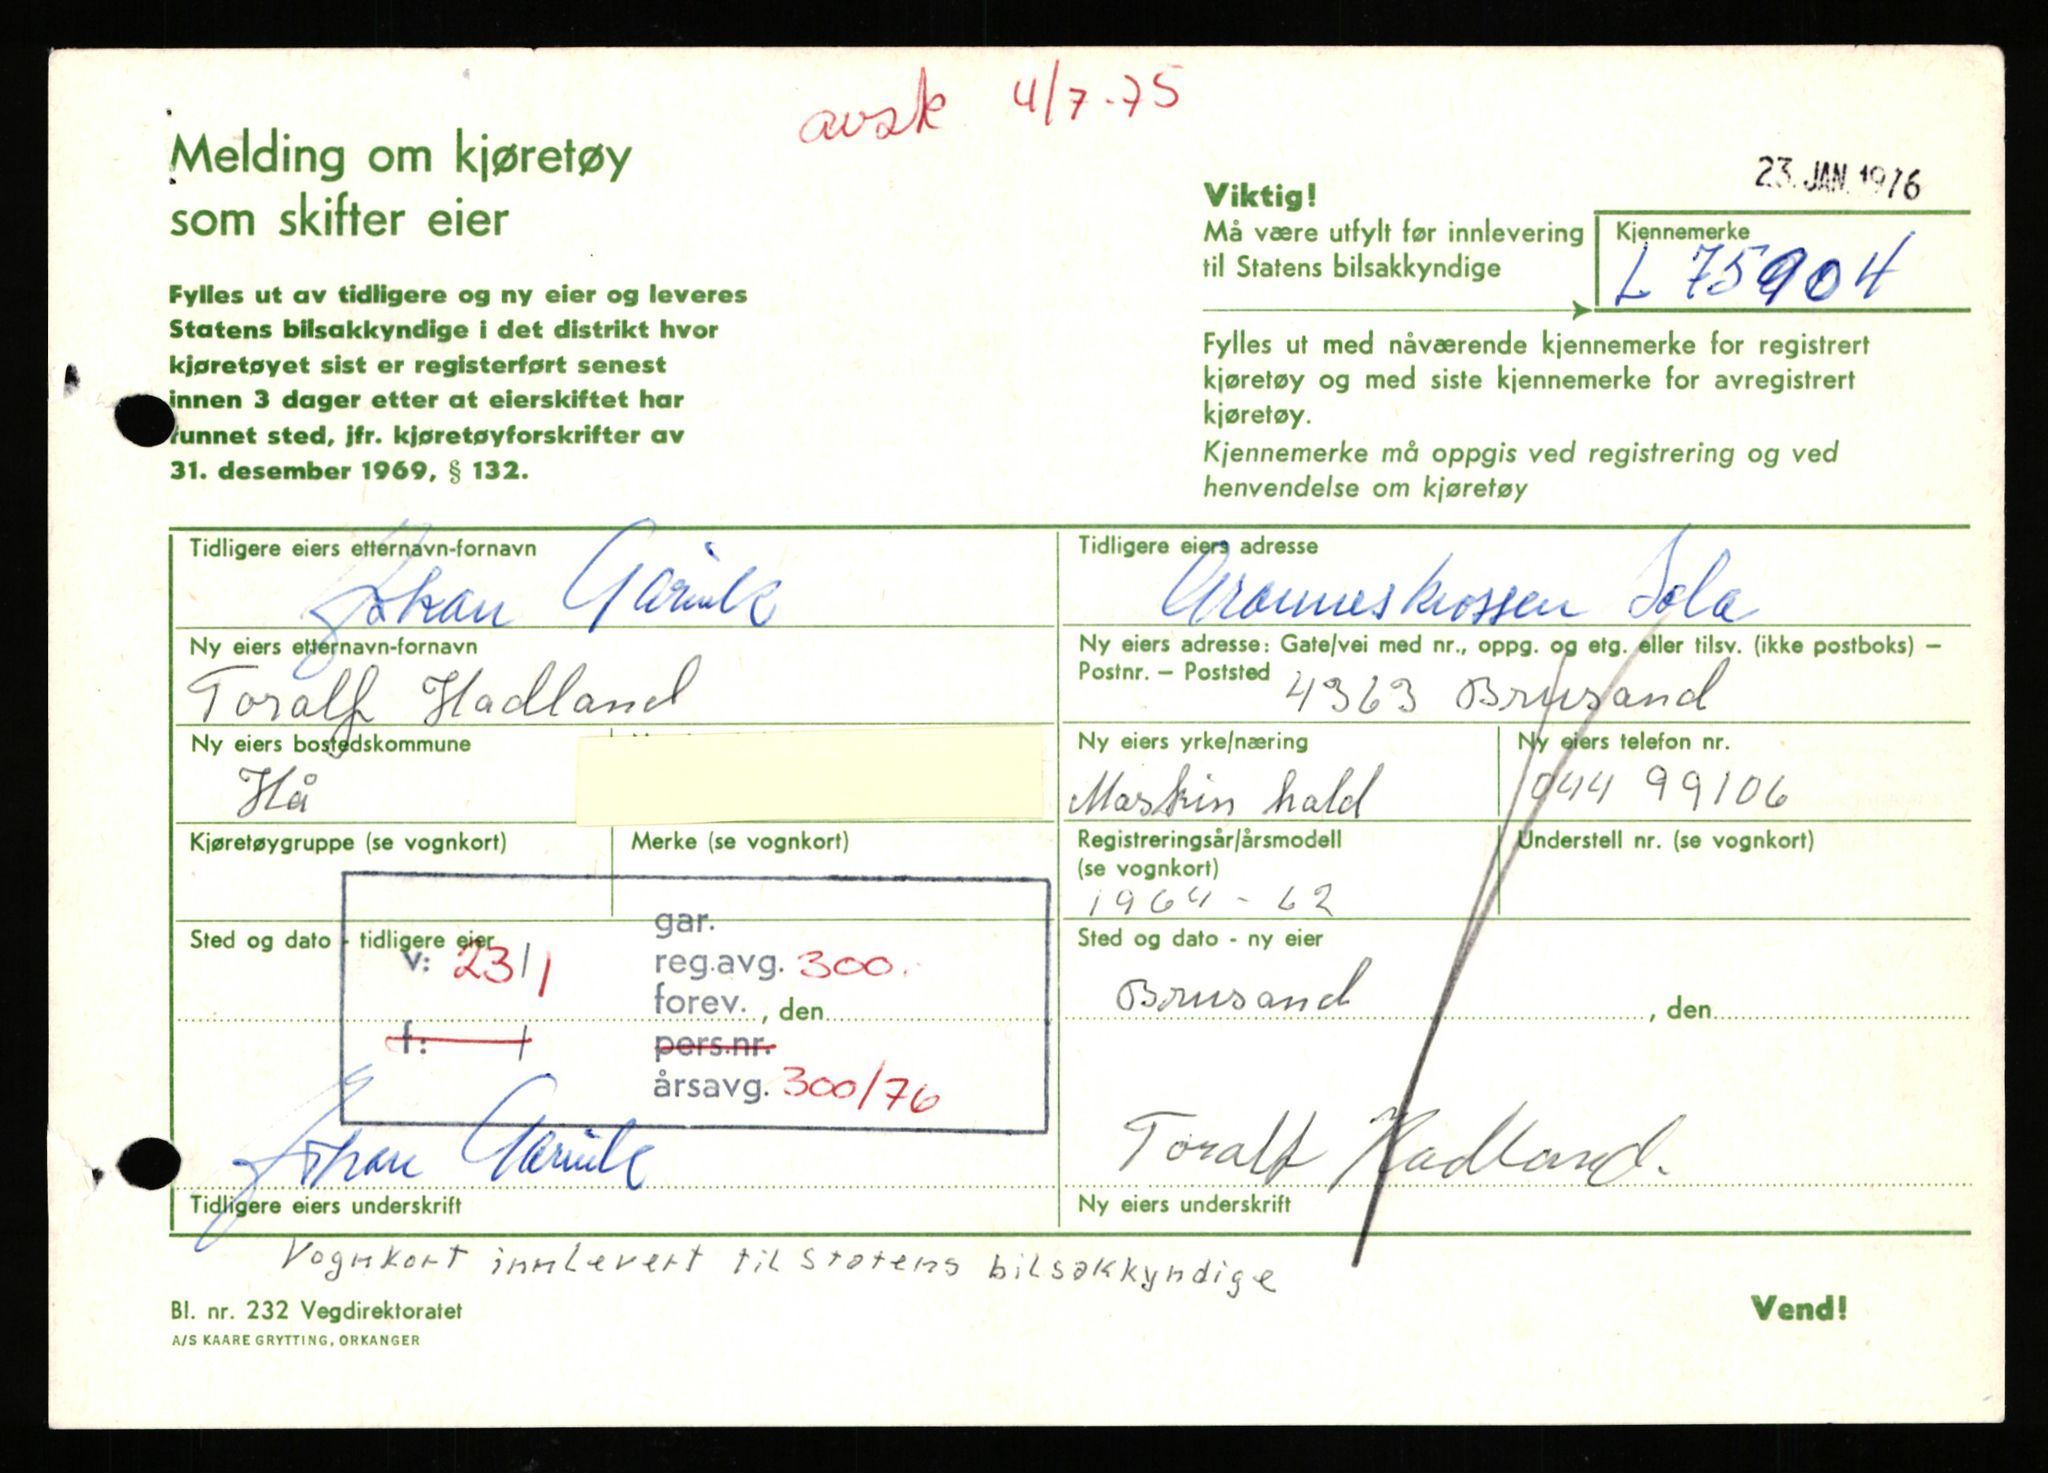 avsk 4/7-75
Melding om kjøretøy
som skifter eier
23. JAN. 1976
Viktig!
Må være utfylt før innlevering
til Statens bilsakkyndige
Kjennemerke
L 75904
Fylles ut av tidligere og ny eier og leveres
Statens bilsakkyndige i det distrikt hvor
kjøretøyet sist er registerført senest
innen 3 dager etter at eierskiftet har
funnet sted, jfr. kjøretøyforskrifter av
31. desember 1969, § 132.
Fylles ut med nåværende kjennemerke for registrert
kjøretøy og med siste kjennemerke for avregistrert
kjøretøy.
Kjennemerke må oppgis ved registrering og ved
henvendelse om kjøretøy
Tidligere eiers etternavn-fornavn
Johan
Tidligere eiers adresse
Sola
Ny eiers etternavn-fornavn
Toralf Hadland
Ny eiers adresse: Gate/vei med nr., oppg. og etg. eller tilsv. (ikke postboks) –
Postnr. – Poststed
4363 Brusand
Ny eiers bostedskommune
Hå
Ny eiers yrke/næring
Maskin hald
Ny eiers telefon nr.
044 99106
Kjøretøygruppe (se vognkort)
Merke (se vognkort)
Registreringsår/årsmodell
(se vognkort)
1964 - 62
Understell nr. (se vognkort)
Sted og dato - tidligere eier
, den
gar.
v: 23/1
reg.avg. 300.
forev.
f: /
pers.nr.
årsavg. 300/76
Sted og dato - ny eier
Brusand , den
Johan
Tidligere eiers underskrift
Toralf Hadland.
Ny eiers underskrift
Vognkort innlevert til Statens bilsakkyndige
Bl. nr. 232 Vegdirektoratet
A/S KAARE GRYTTING, ORKANGER
Vend!